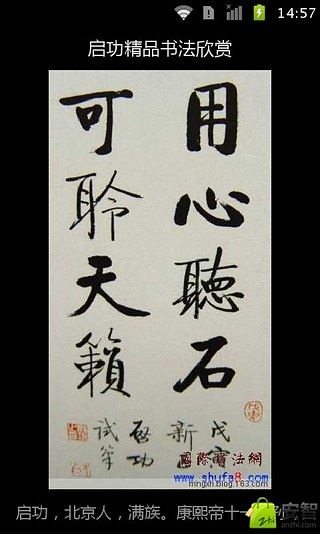 14:57
启功精品书法欣赏
用心聽石
可聆天籟
戊寅
新
启功
試筆
國際書法網
www.shufa8.com
mingxin.blog.163.com
启功，北京人，满族。康熙帝十
安智
anzhi.com